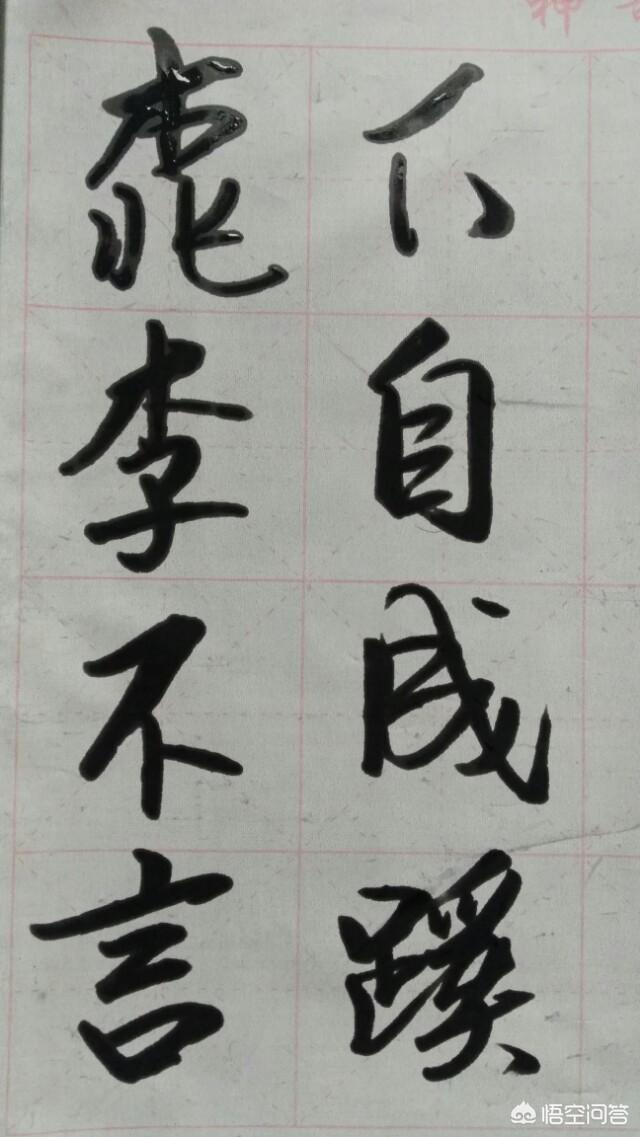 桃李不言
下自成蹊
悟空问答